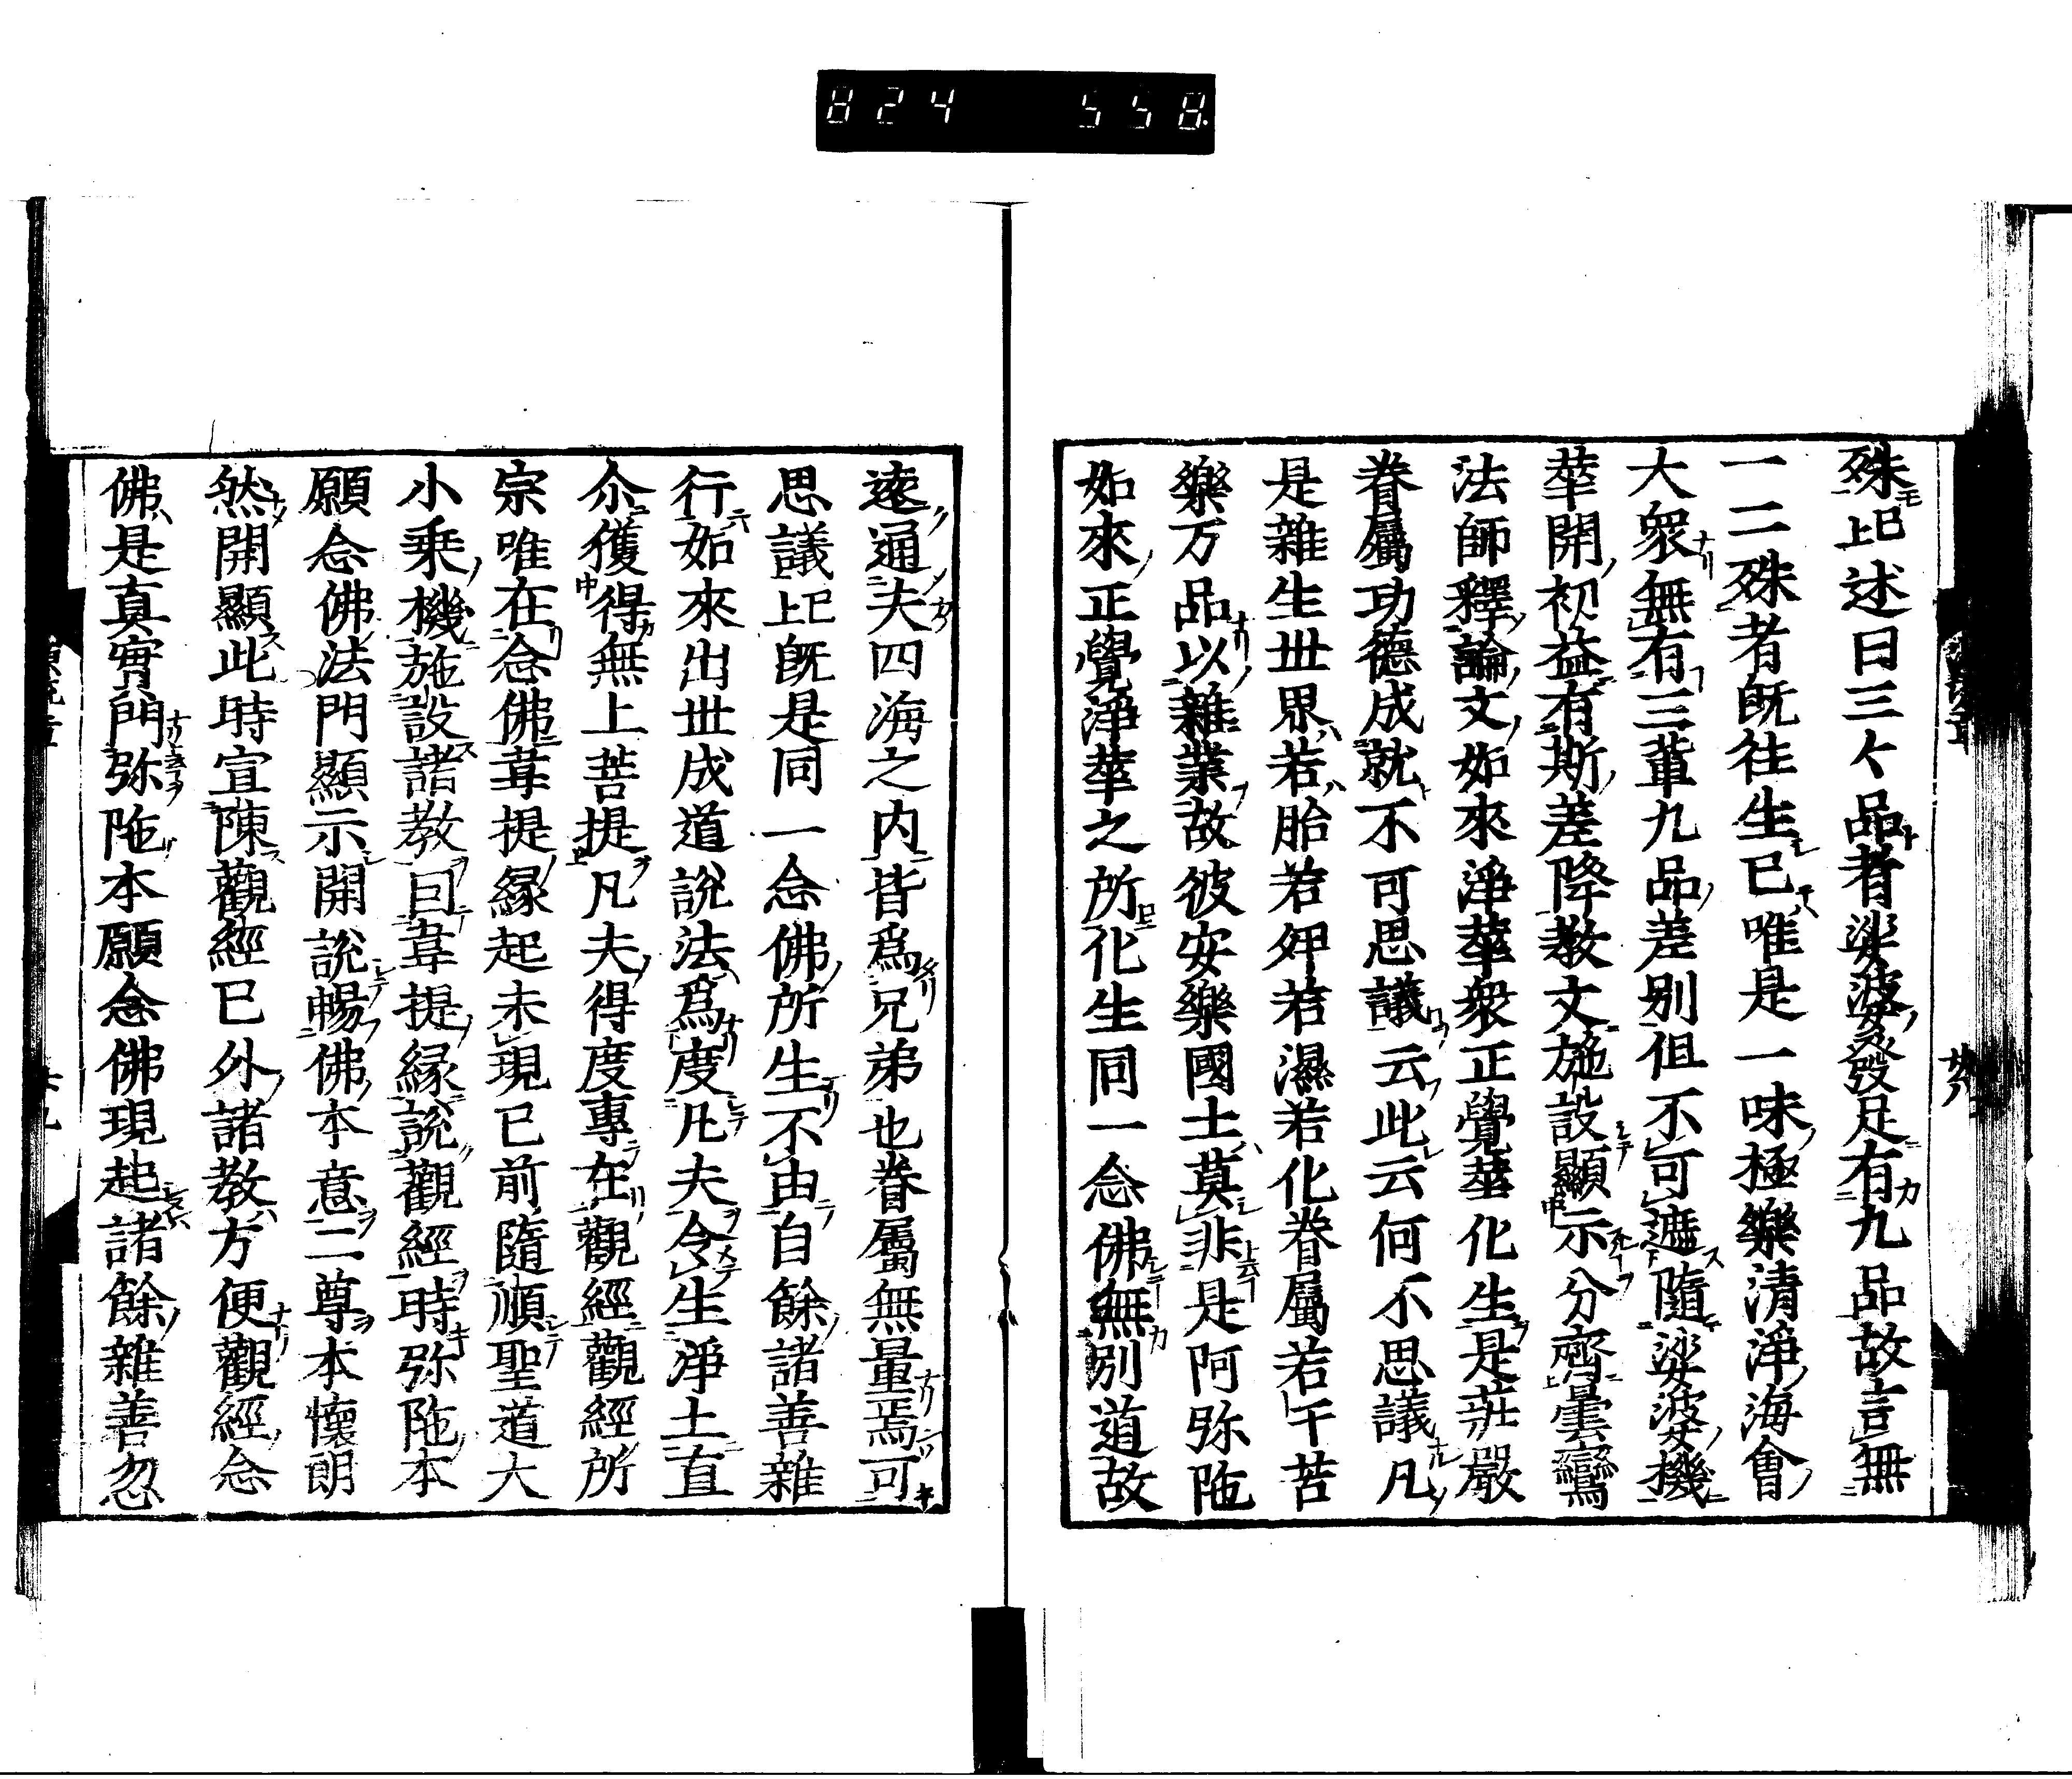 824 558
殊已上述曰三々品者娑婆發足有九品故言無
一二殊者既往生已唯是一味極樂清淨海會
大衆無有三輩九品差別但不可遮隨娑婆機
華開初益有斯差降教文施設顯示分齊曇鸞
法師釋論文如來淨華衆正覺華化生是莊嚴
眷屬功德成就不可思議云此云何不思議凡
是雜生世界若胎若卵若濕若化眷屬若干苦
樂万品以雜業故彼安樂國土莫非是阿弥陁
如來正覺淨華之所化生同一念佛無別道故
遠通夫四海之内皆爲兄弟也眷屬無量焉可
思議已上既是同一念佛所生不由自餘諸善雜
行如來出世成道說法爲度凡夫令生淨土直
尒獲得無上菩提凡夫得度專在觀經觀經所
宗唯在念佛韋提縁起未現已前隨順聖道大
小乗機施設諸教囙韋提縁說觀經時弥陁本
願念佛法門顯示開說暢佛本意二尊本懷朗
然開顯此時宣陳觀經已外諸教方便觀經念
佛是真實門弥陁本願念佛現起諸餘雜善忽